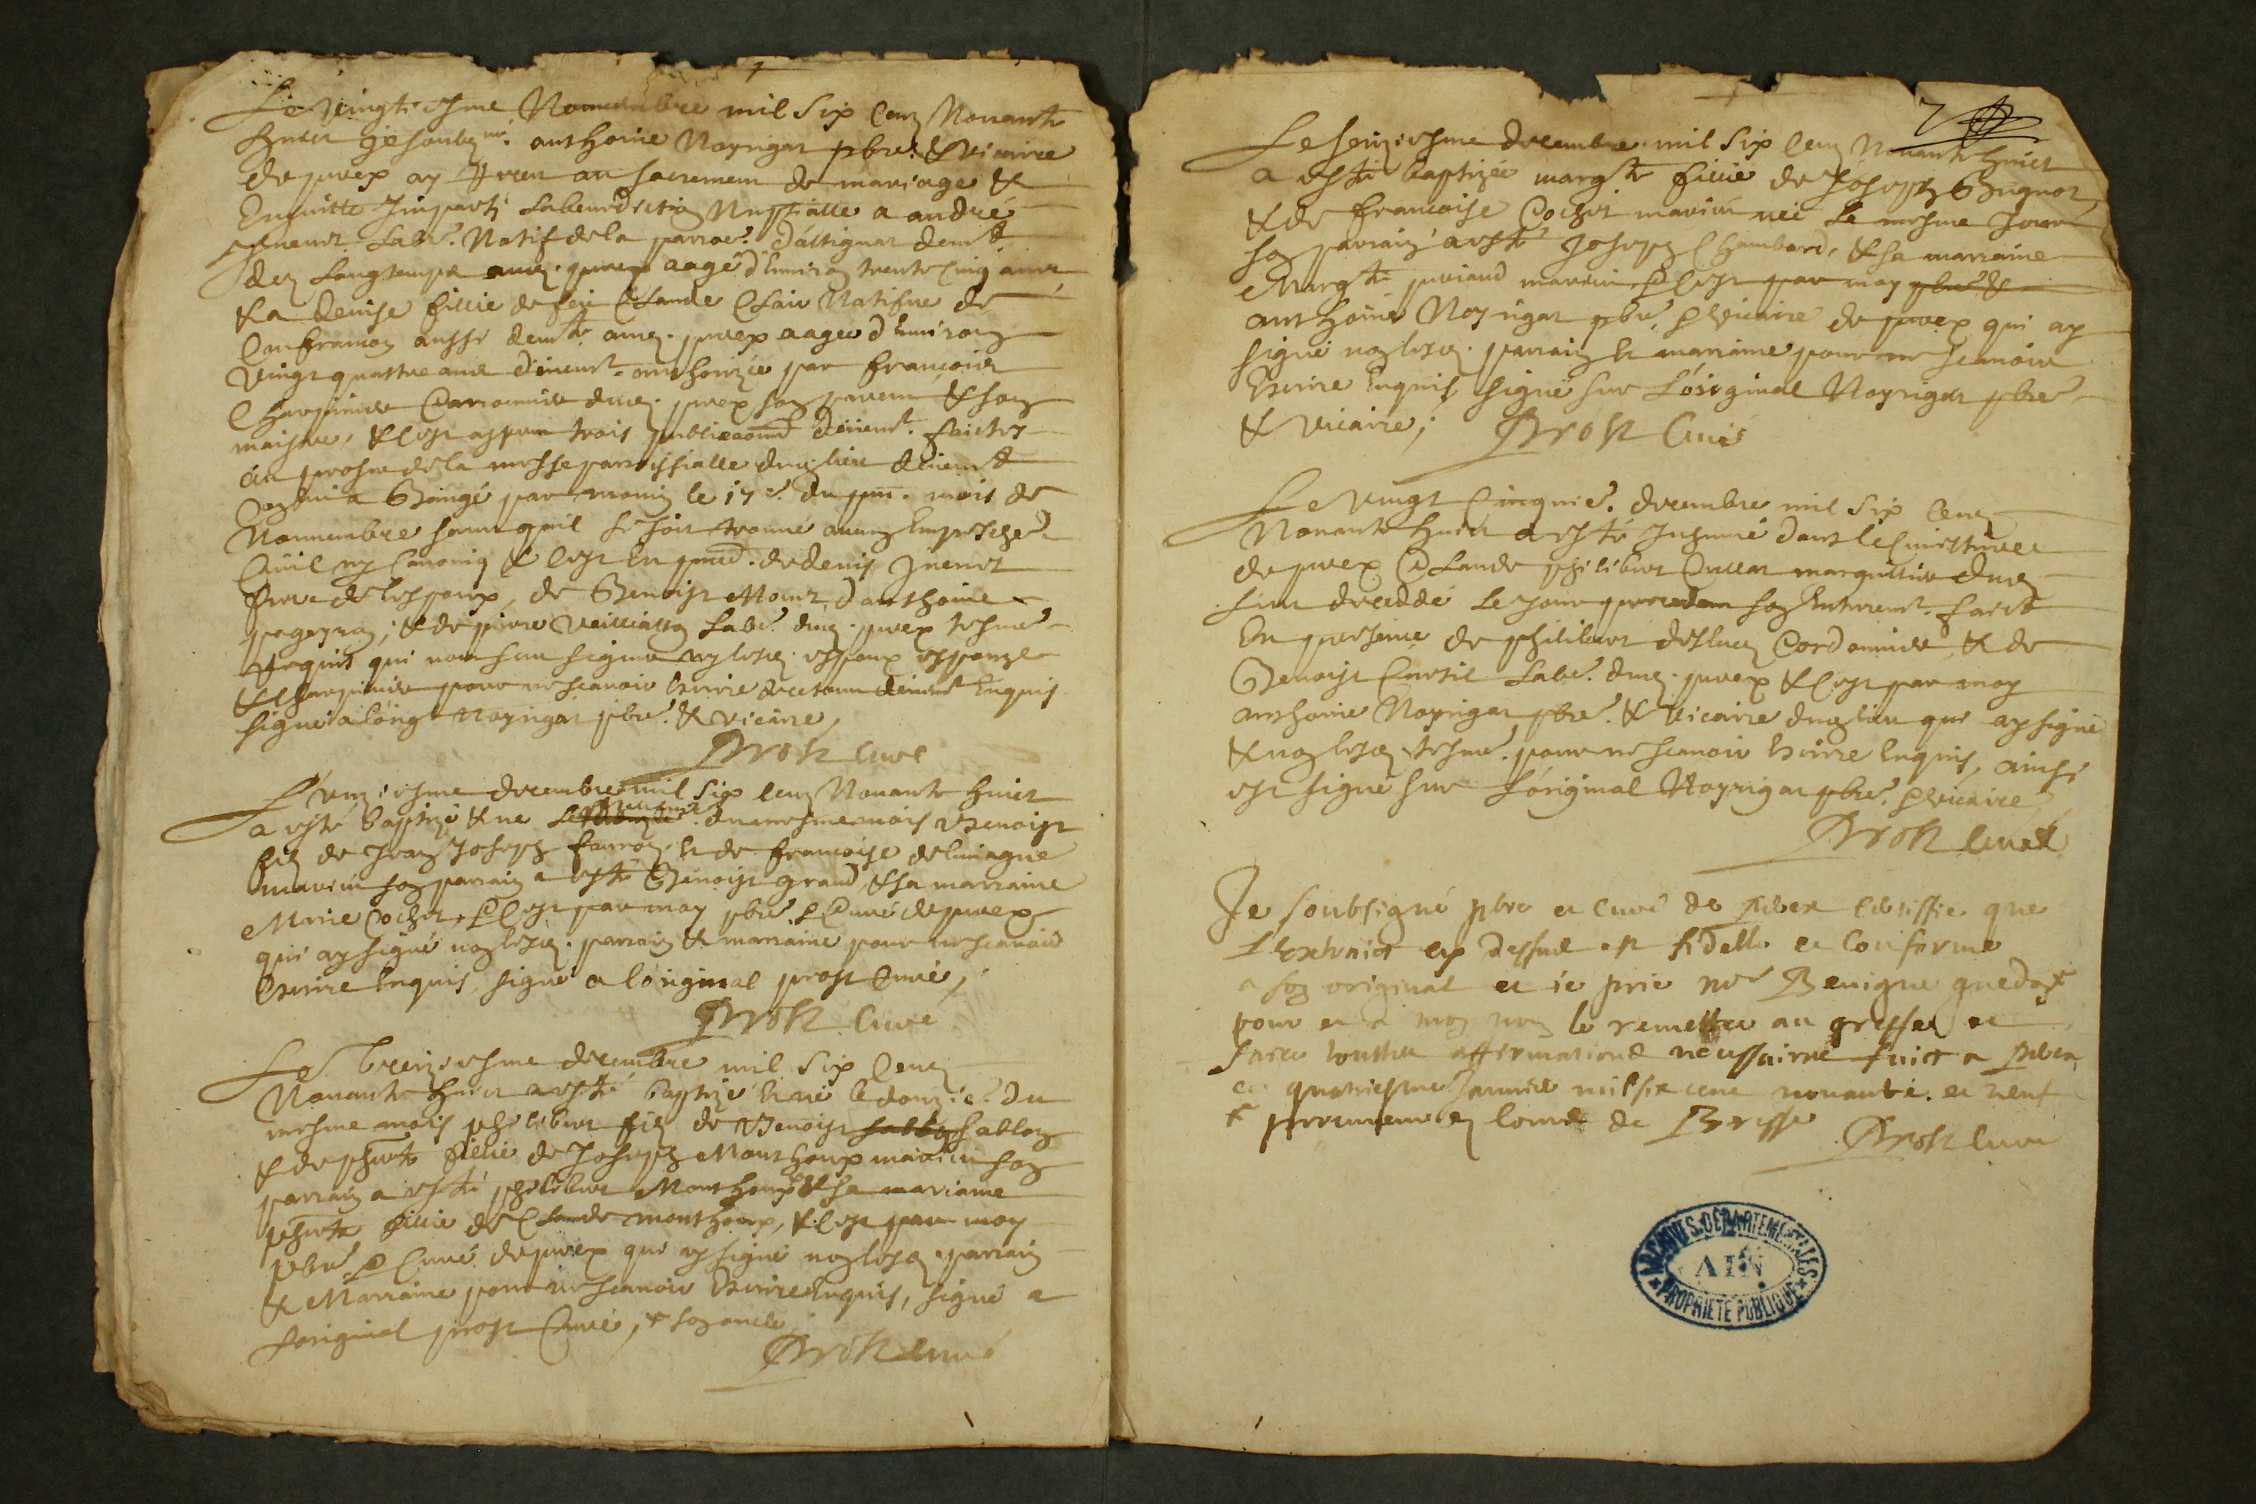 Le vingtiesme Nouembre mil six cens Nonante
huict je soubzné. anthoine Noyrigat pbre. & vicaire
de prιex ay receu au sacrement de mariage &
Ensuitte Imparty la benediction Nuptialle a andré
Labr. Natif de la parroe. d'attignat demt.
des Longtemps aud. aagé d'Enuiron trente cinq ans
& a denise fillie de feu Claude Clair Natifue de
Confrancon aussi demte. aud. aagee d'Enuiron
vingt quattre ans authorizée par francois
Charpentier son parent & son
maistre, & c'est apres trois publicaons faictes
au prosne de la messe parroissialle dud. lieu
par le 17e. du pnt. mois de
Nouuembre sans qu'il se soit trouué aucung Empesche.
Ciuil ny Canoniq & c'est En pnce. de denis
frere de l'espoux, de Benoist d'anthoine
& de pierre Labr. dud. tesms.
Requis qui n'ont sceu signer ny lesd. espoux espouze
& Charpentier pour ne scauoir Escrire Enquis
signé a l'orig. Noyrigat pbre. & vicaire,
Prost Curé
L'unziesme decembre mil six cens Nonante huict
a esté baptizé & né le du mesme mois Benoist
filz de Jean Joseph & de francoise
mariés son parrain a esté Benoist grand & sa marraine
Marie Cochet, & c'est par moy pbre. & Curé de
qui ay signé non lesd. parrain & marraine pour ne scauoir
Escrire Enquis, signé a l'original prost Curé,
Prost Curé
Le Treiziesme decembre mil six cens
Nonante huict a esté baptizé & né le douzie. du
mesme mois philibert filz de Benoist sablon
& de fillie de Joseph Monthoux mariés son
parrain a esté philibert Monthoux & sa marraine
fillie de Claude monthoux, & c'est par moy
pbre & Curé de qui ay signé non lesd. parrain
& Marraine pour ne scauoir Escrire Enquis, signé a
l'original prost Curé, + son oncle
Prost Curé
7
Le seiziesme decembre mil six cens Nonante huict
a esté baptizée margte. fillie de Joseph
& de francoise Cochet mariés née le mesme Jour
son parrain a esté Joseph Chambard, & sa marraine
Margte. mariés & c'est par moy
anthoine Noyrigat pbre, & vicaire de qui ay
signé non lesd. parrain & marraine pour ne scauoir
Escrire Enquis signé sur l'original Noyrigat pbre
& vicaire, Prost Curé
Le vingt Cinquie. decembre mil six cens
Nonante huict a esté Inhumé dans le Cimettiere
de Claude philibert marguillier dud.
lieu decedde le Jour precedent son Enterremt. faict
En presence de philibert Cordonnier & de
Benoist Curtil Labr. dud. & c'est par moy
anthoine Noyrigat pbre. & vicaire dud. lieu qui ay signé
& non lesd. tesms. pour ne scauoir Escrire Enquis, ainsi
est signé sur l'original Noyrigat pbre. & vicaire
Prost Curé
Je soubsigné pbre et curé de certiffie que
L'Extraict cy dessus est fidelle et conforme
a son original et ie prie Mr Benigne
pour et a mon nom le remettre au greffe et
faire touttes affirmations necessaires faict a
ce quatriesme Januier mil six cens nonante et neuf
+ procureur es cours de Bresse
Prost Curé
ARCHIVES DÉPARTEMENTALES
AIN
PROPRIÉTÉ PUBLIQUE